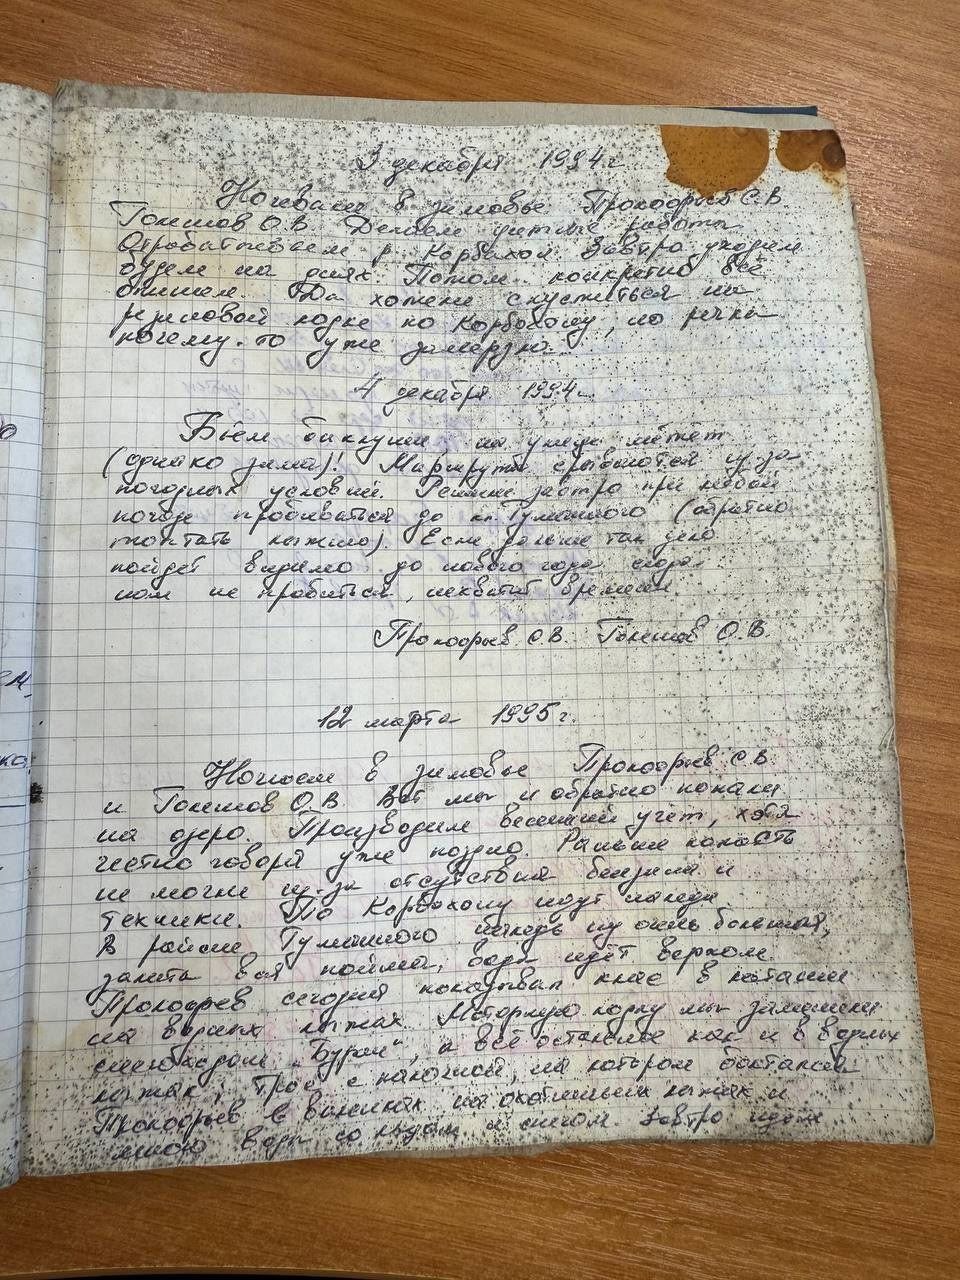 3 декабря 1994 г
Ночевали в зимовье Прокофьев С.В.
Голишов О.В. Делаем учётные работы
Отрабатываем р. Корбохон. Завтра уходим
будем на днях. Потом конкретно всё
опишем. Да хотели спуститься на
резиновой лодке по Корбохону, но речка
почему-то уже замерзла...
4 декабря 1994 г.
Бьём баклуши, на улице метёт
(однако зима)! Маршруты срываются из-за
погодных условий. Решили завтра при любой
погоде пробиваться до кл. Туманного (обратно
топтать лыжню). Если дальше так дело
пойдёт видимо до нового года
нам не пробиться, нехватит времени.
Прокофьев С.В. Голишов О.В.
12 марта 1995 г.
Ночуем в зимовье Прокофьев С.В.
и Голишов О.В. Вот мы и обратно попали
на озеро. Производим весенний учёт, хотя
честно говоря уже поздно. Раньше попасть
не могли из-за отсутствия бензина и
техники. По Корбохону идут наледи.
В районе Туманного наледь ну очень большая,
залита вся пойма, вода идёт верхом.
Прокофьев сегодня показывал класс в катании
на водных лыжах. Моторную лодку мы заменили
снегоходом "Буран", а всё остальное как и в водных
лыжах, трос с палочкой, на котором болтался
Прокофьев в валенках на охотничьих лыжах и
много воды со льдом и снегом. Завтра идём